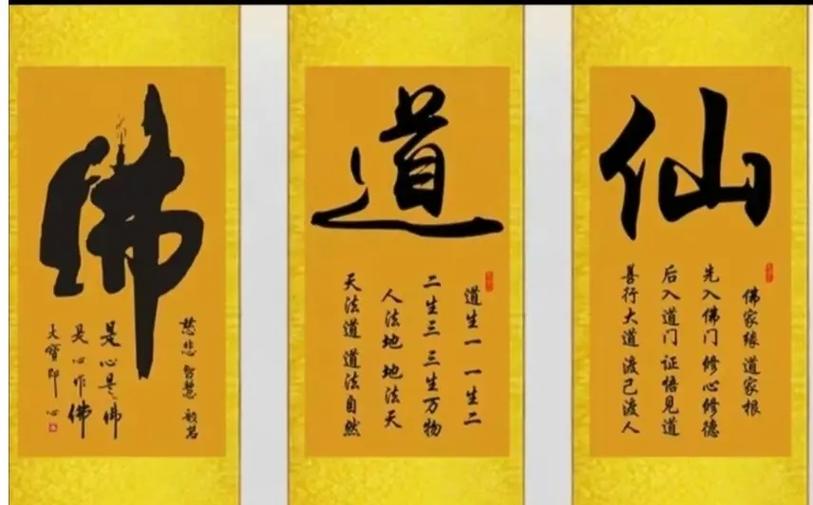 佛
慈悲 智慧 般若
是心是佛
是心作佛
大寶即心
道
道生一 一生二
二生三 三生万物
人法地 地法天
天法道 道法自然
仙
佛家缘 道家根
先入佛门 修心修德
后入道门 证悟见道
善行大道 渡己渡人